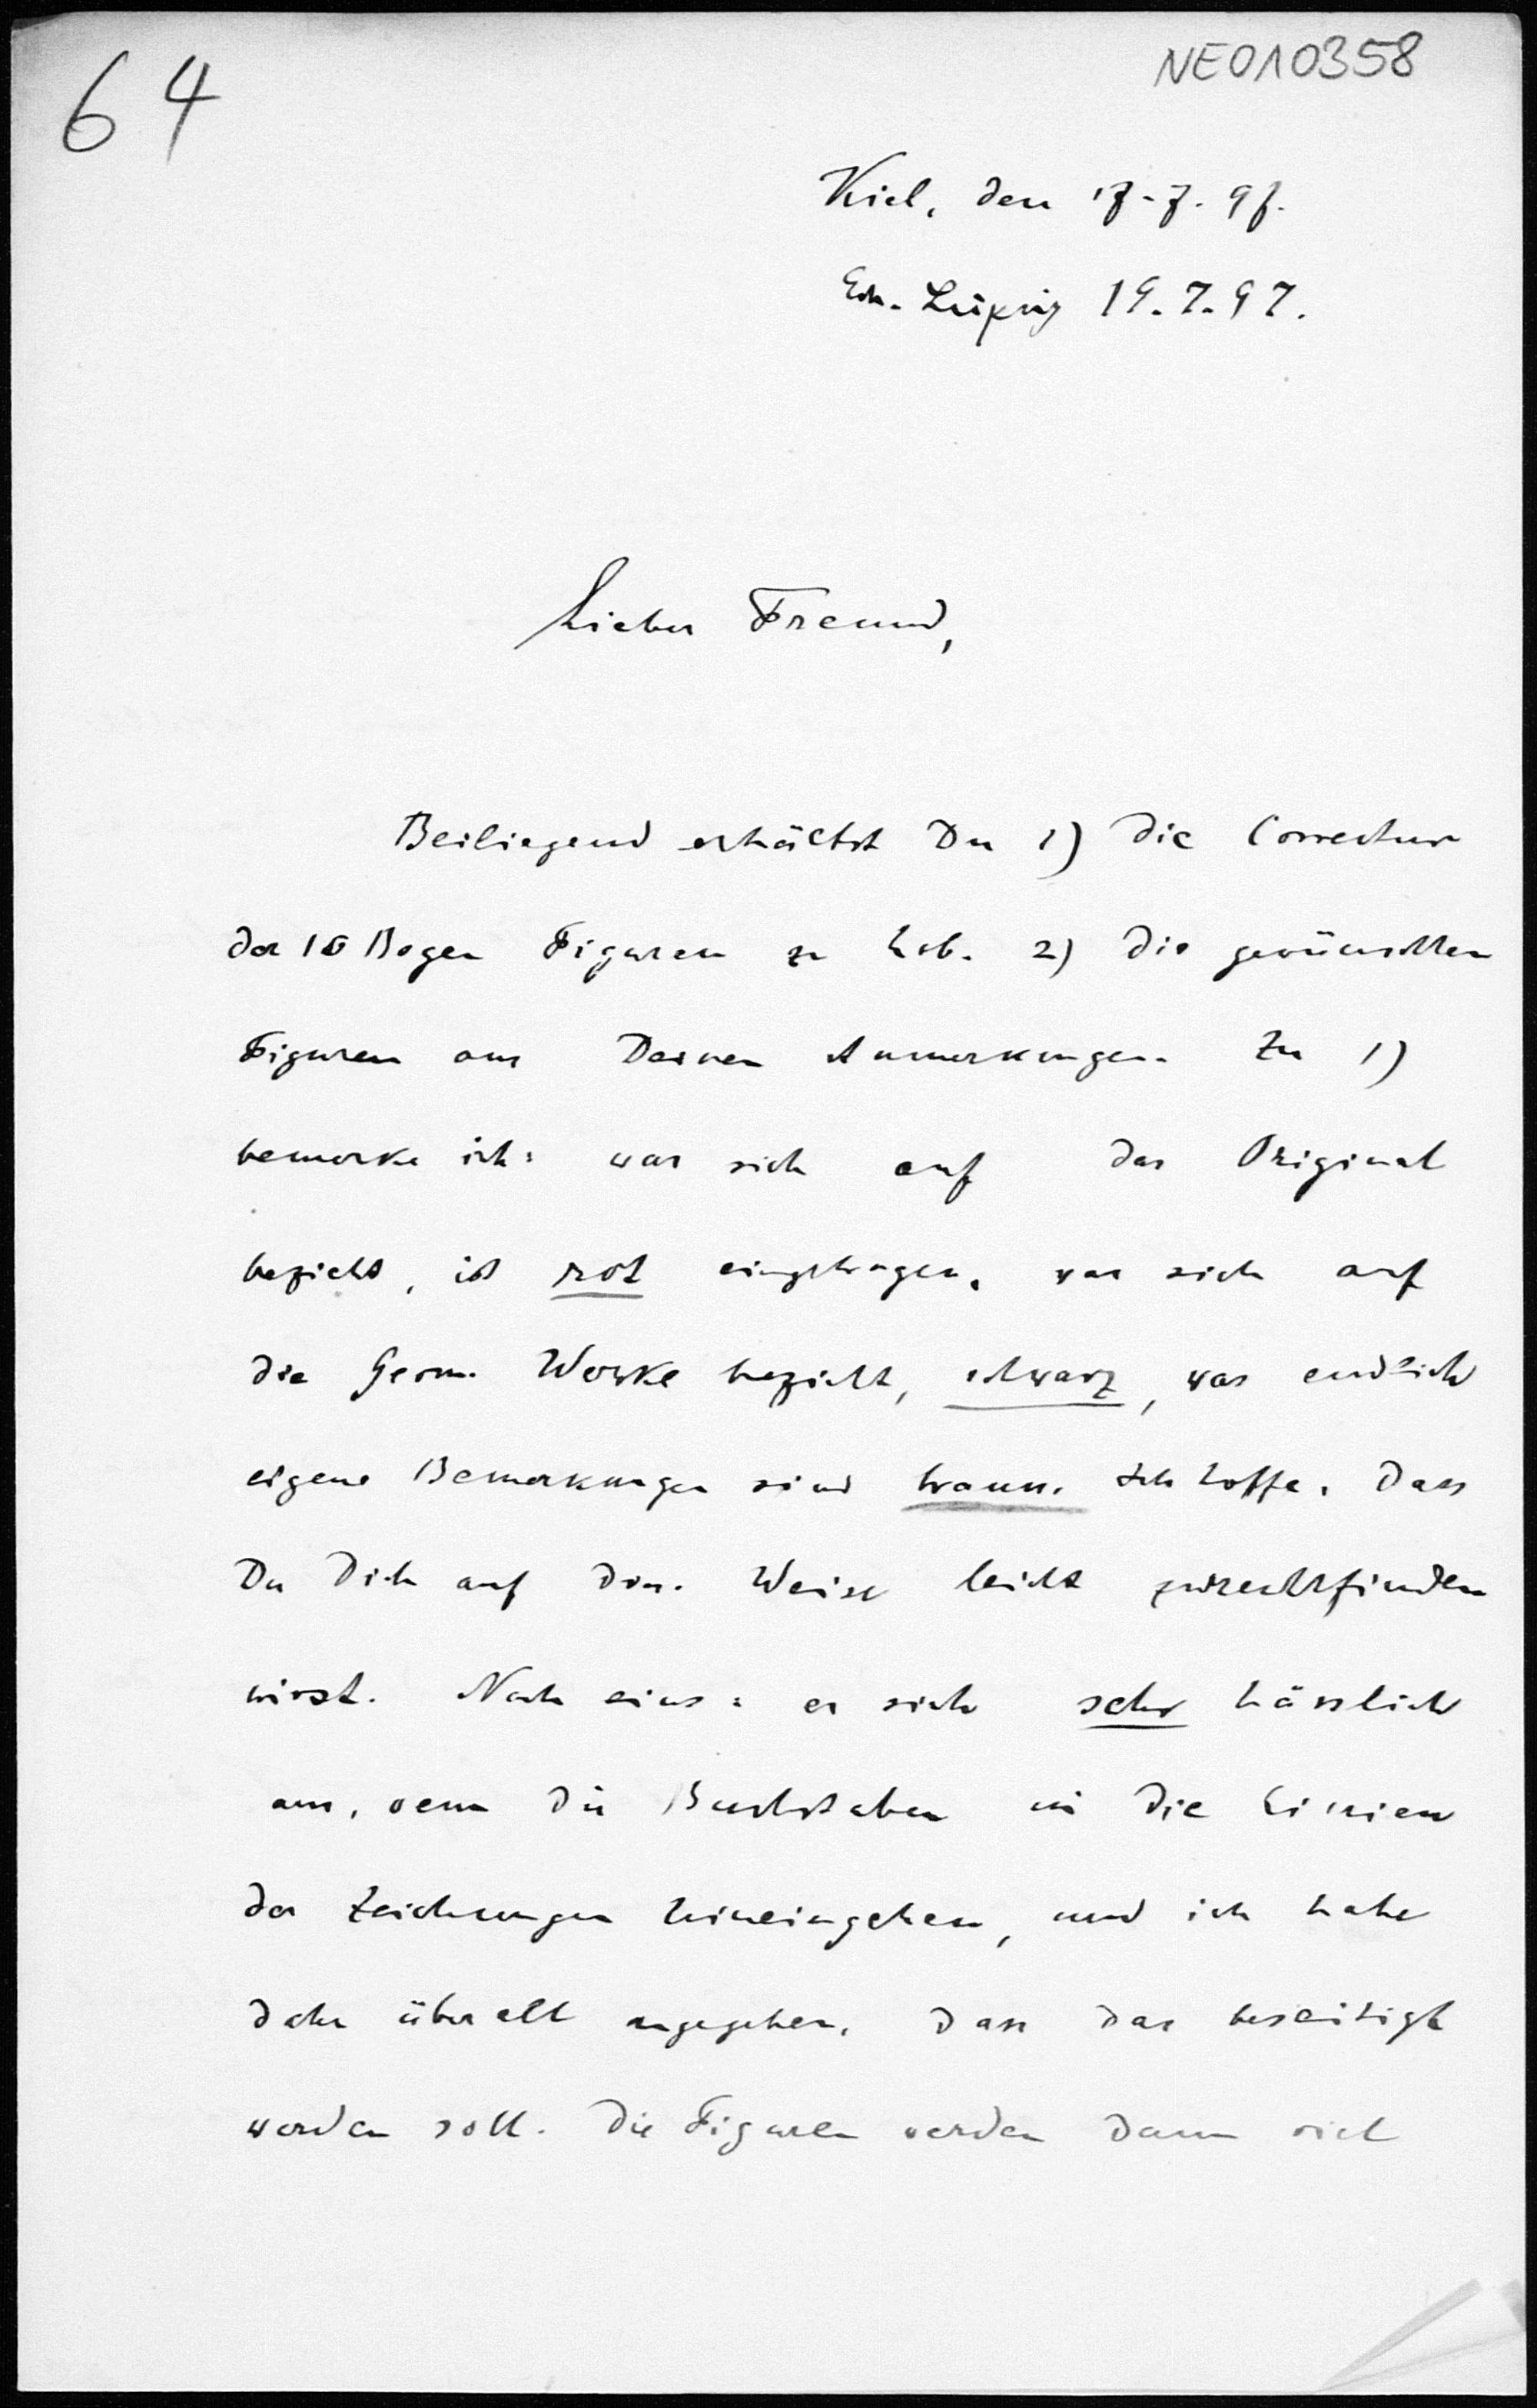 64
NE010358
Kiel, den 17.7.97.
Erh. Leipzig 19.7.97.
Lieber Freund,
Beiliegend erhältst Du 1) die Correctur
der 10 Bogen Figuren zu Lob. 2) die gewünschten
Figuren aus Deinen Anmerkungen. Zu 1)
bemerke ich: was sich auf das Original
bezieht, ist rot eingetragen, was sich auf
die Gesm. Werke bezieht, schwarz, was endlich
eigene Bemerkungen sind braun. Ich hoffe, dass
Du Dich auf diese Weise leicht zurechtfinden
wirst. Noch eins: es sieht sehr hässlich
aus, wenn die Buchstaben in die Linien
der Zeichnungen hineingehen, und ich habe
daher überall angegeben, dass das beseitigt
werden soll. Die Figuren werden dann viel